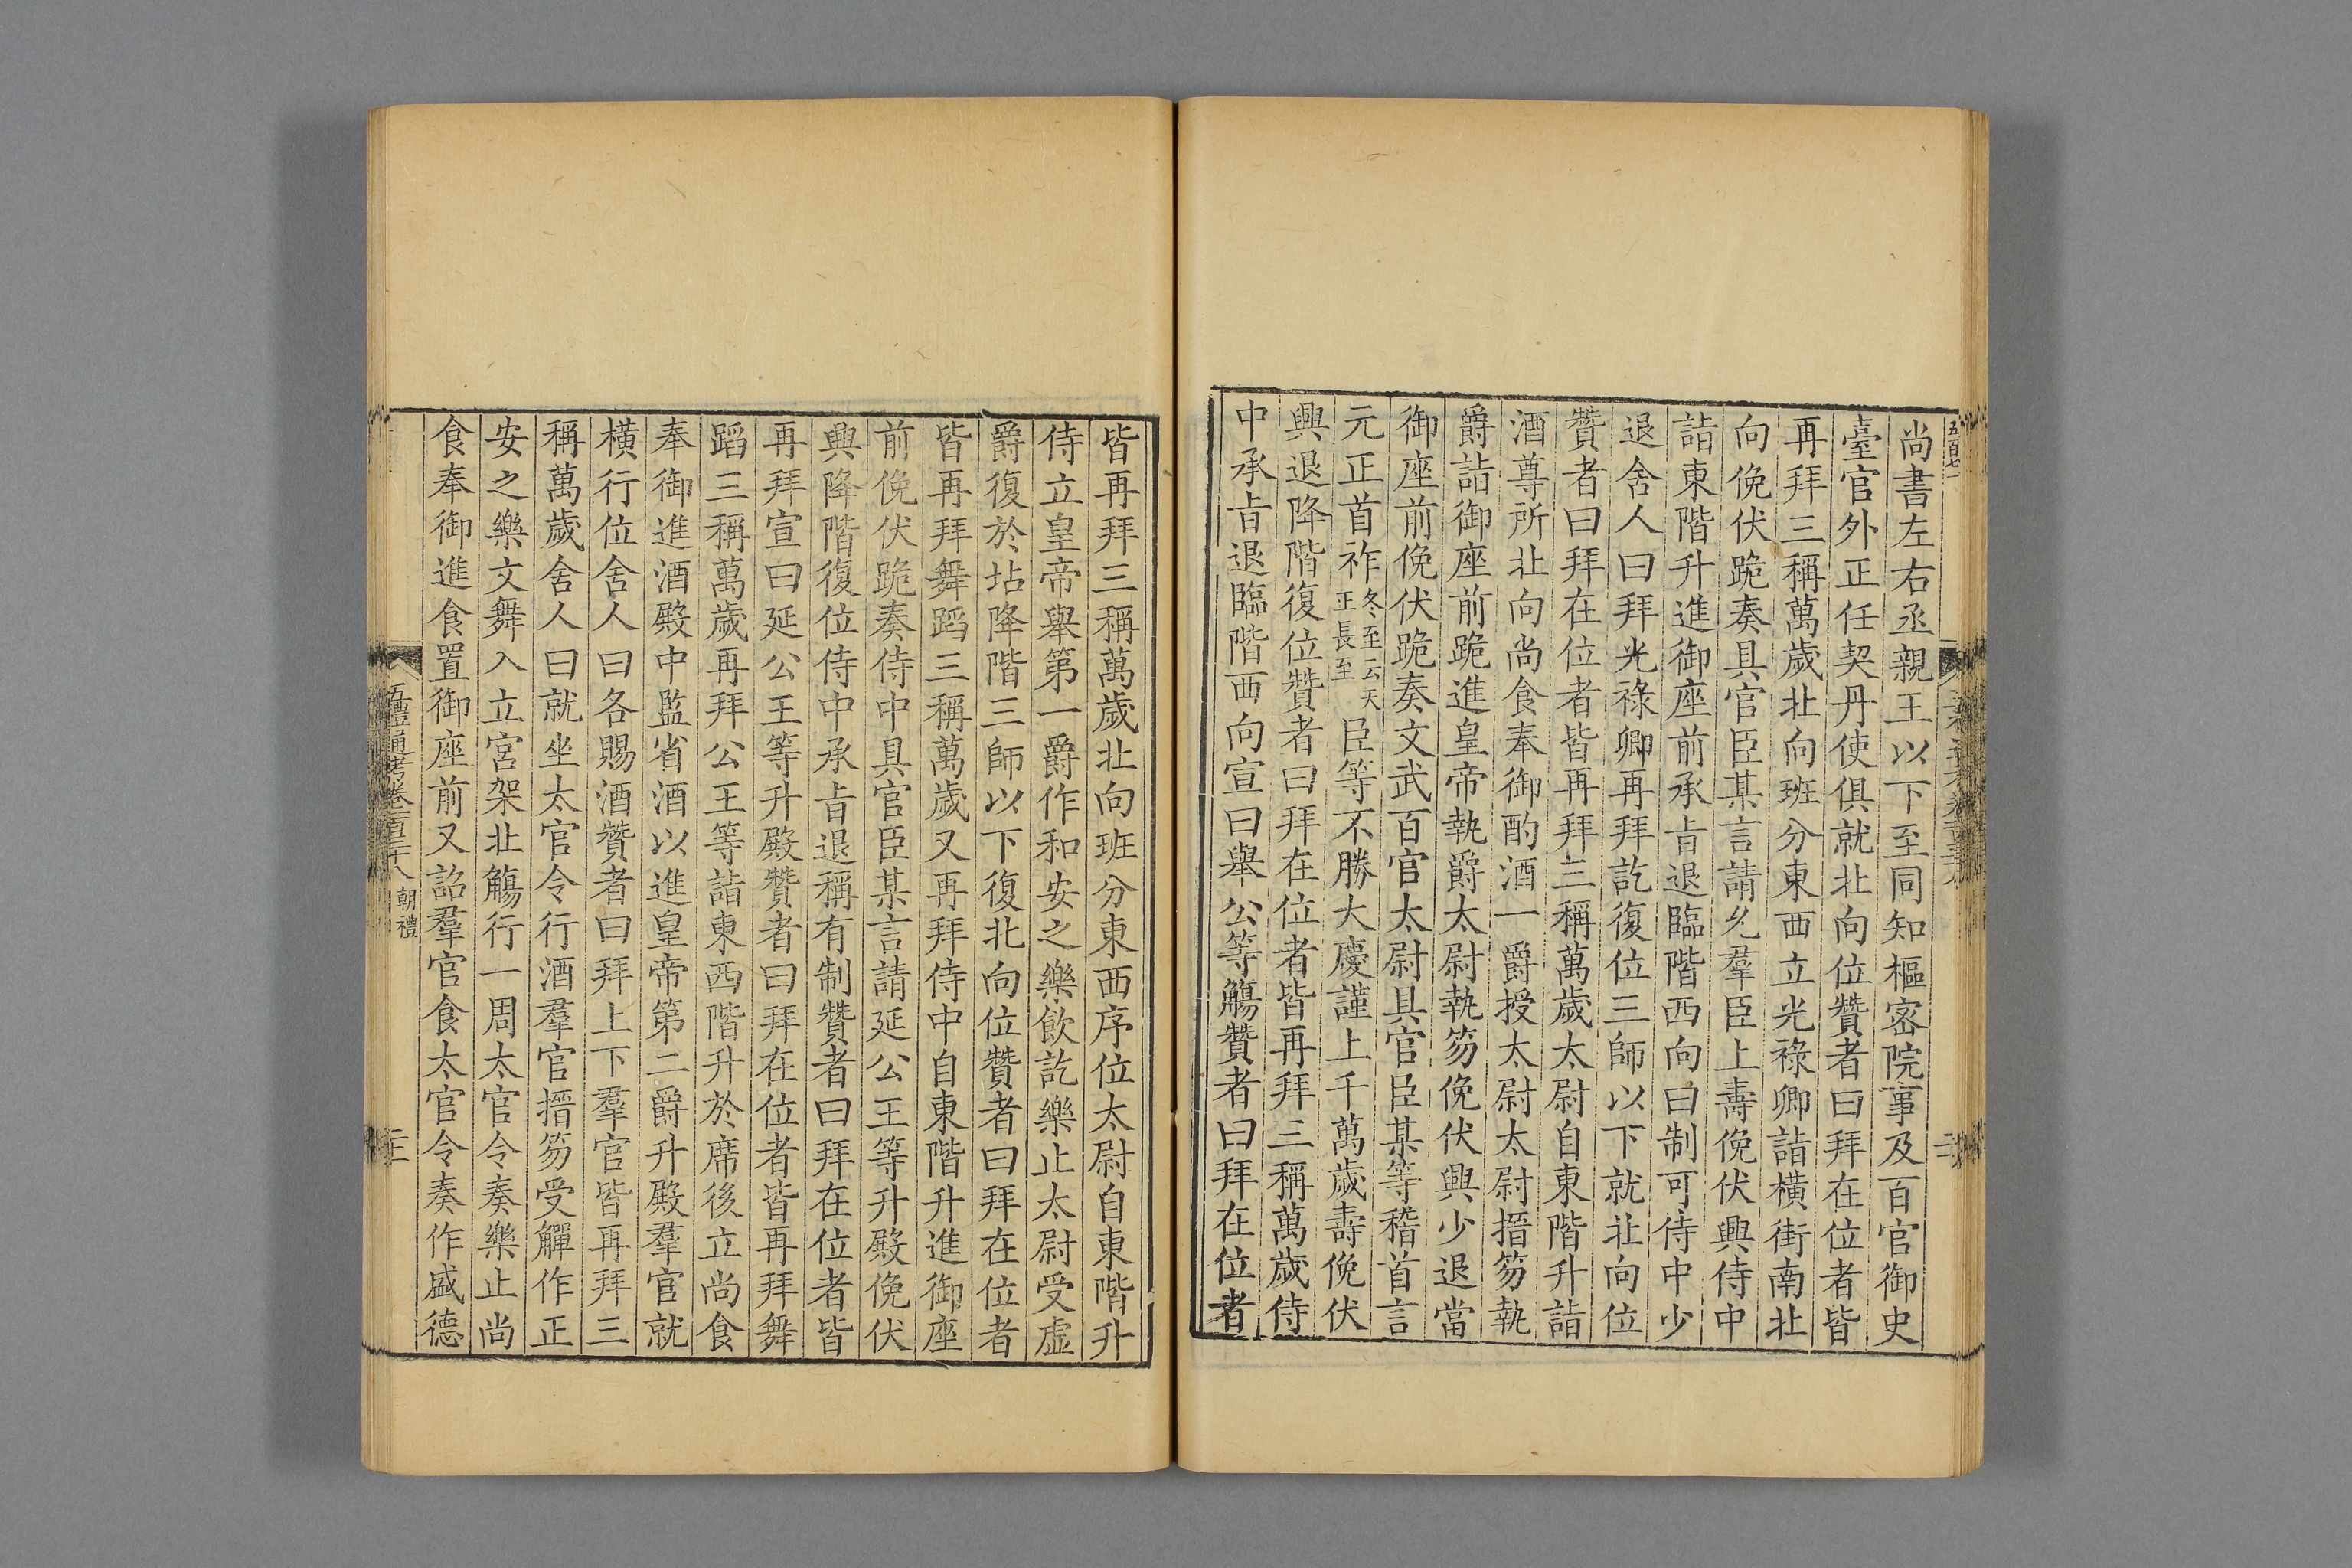 尚書左右丞親王以下至同知樞密院事及百官御史
臺官外正任契丹使俱就北向位贊者曰拜在位者皆
再拜三稱萬歲北向班分東西立光祿卿詣橫街南北
向俛伏跪奏具官臣某言請允羣臣上壽俛伏興侍中
詣東階升進御座前承旨退臨階西向曰制可侍中少
退舍人曰拜光祿卿再拜訖復位三師以下就北向位
贊者曰拜在位者皆再拜三稱萬歲太尉自東階升詣
酒尊所北向尚食奉御酌酒一爵授太尉太尉搢笏執
爵詣御座前跪進皇帝執爵太尉執笏俛伏興少退當
御座前俛伏跪奏文武百官太尉具官臣某等稽首言
元正首祚冬至云天正長至臣等不勝大慶謹上千萬歲壽俛伏
興退降階復位贊者曰拜在位者皆再拜三稱萬歲侍
中承旨退臨階西向宣曰舉公等觴贊者曰拜在位者
皆再拜三稱萬歲北向班分東西序位太尉自東階升
侍立皇帝舉第一爵作和安之樂飲訖樂止太尉受虛
爵復於坫降階三師以下復北向位贊者曰拜在位者
皆再拜舞蹈三稱萬歲又再拜侍中自東階升進御座
前俛伏跪奏侍中具官臣某言請延公王等升殿俛伏
興降階復位侍中承旨退稱有制贊者曰拜在位者皆
再拜宣曰延公王等升殿贊者曰拜在位者皆再拜舞
蹈三稱萬歲再拜公王等詣東西階升於席後立尚食
奉御進酒殿中監省酒以進皇帝第二爵升殿羣官就
橫行位舍人曰各賜酒贊者曰拜上下羣官皆再拜三
稱萬歲舍人曰就坐太官令行酒羣官搢笏受觶作正
安之樂文舞入立宮架北觴行一周太官令奏樂止尚
食奉御進食置御座前又詔羣官食太官令奏作盛德
五禮通考卷一百三十八 朝禮